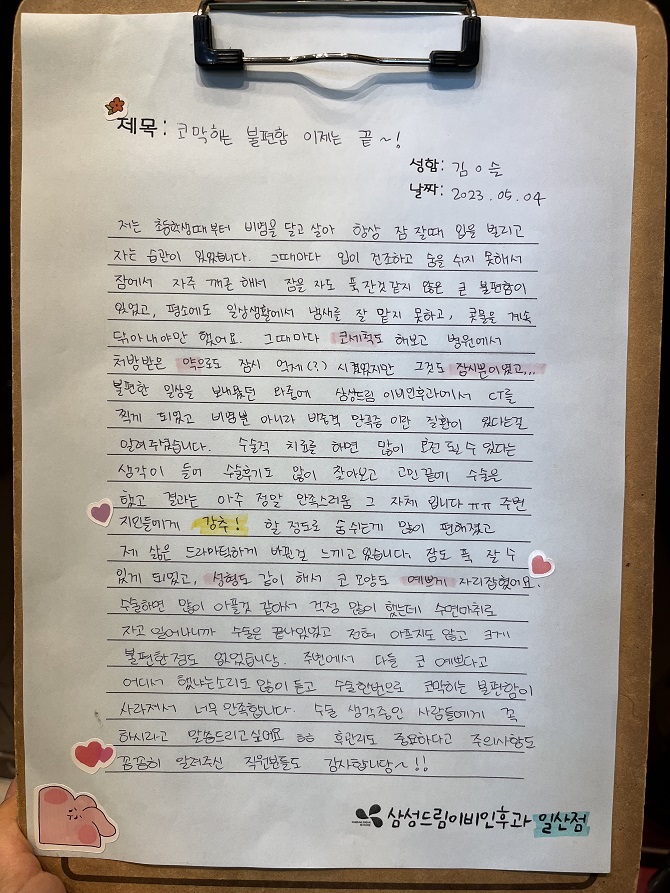 제목: 코막히는 불편함 이제는 끝~!
성함: 김이슬
날짜: 2023.05.04
저는 초등학생때부터 비염을 달고살아 항상 잠 잘때 입을 벌리고
자는 습관이 있었습니다. 그때마다 입이 건조하고 숨을 쉬지 못해서
잠에서 자주 깨곤 해서 잠을 자도 푹잔것같지 않은 큰 불편함이
있었고, 평소에도 일상생활에서 냄새를 잘 맡지 못하고, 콧물을 계속
닦아내야만 했어요. 그때마다 코세척도 해보고 병원에서
처방받은 약으로도 잠시 억제(?) 시켰었지만 그것도 잠시뿐이었고...
불편한 일상을 보내왔던 와중에 삼성드림 이비인후과에서 CT를
찍게 되었고 비염뿐 아니라 비중격 만곡증 이란 질환이 있다는걸
알려주셨습니다. 수술적 치료를 하면 많이 호전 될 수 있다는
생각이 들어 수술후기도 많이 찾아보고 고민끝에 수술은
했고 결과는 아주 정말 만족스러움 그 자체 입니다 ㅠㅠ 주변
지인들에게 강추! 할 정도로 숨쉬는게 많이 편해졌고
제 삶은 드라마틱하게 바뀐걸 느끼고 있습니다. 잠도 푹 잘 수
있게 되었고, 성형도 같이 해서 코 모양도 예쁘게 자리잡혔어요.
수술하면 많이 아플것 같아서 걱정 많이 했는데 수면마취로
자고 일어나니까 수술은 끝나있었고 전혀 아프지도 않고 크게
불편한점도 없었습니당. 주변에서 다들 코 예쁘다고
어디서 했냐는소리도 많이 듣고 수술한번으로 코막히는 불편함이
사라져서 너무 만족합니다. 수술 생각중인 사람들에게 꼭
하시라고 말씀드리고싶어요 ㅎㅎ 후관리도 중요하다고 주의사항도
꼼꼼히 알려주신 직원분들도 감사합니당~!!
삼성드림이비인후과 일산점